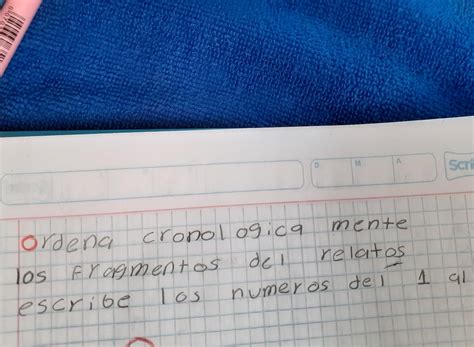 D M A
Scri
Ordena cronologica mente
los Fragmentos del relatos
escribe los numeros del 1 al